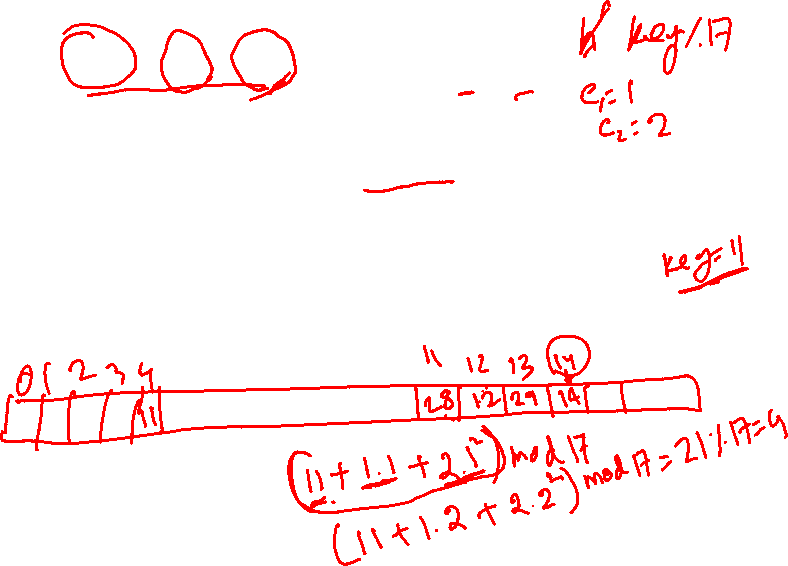 h key%17
c₁=1
c₂=2
key=11
0 1 2 3 4 11 12 13 14
11 28 12 29 14
(11 + 1.1 + 2.1²) mod 17
(11 + 1.2 + 2.2²) mod 17 = 21%17=4